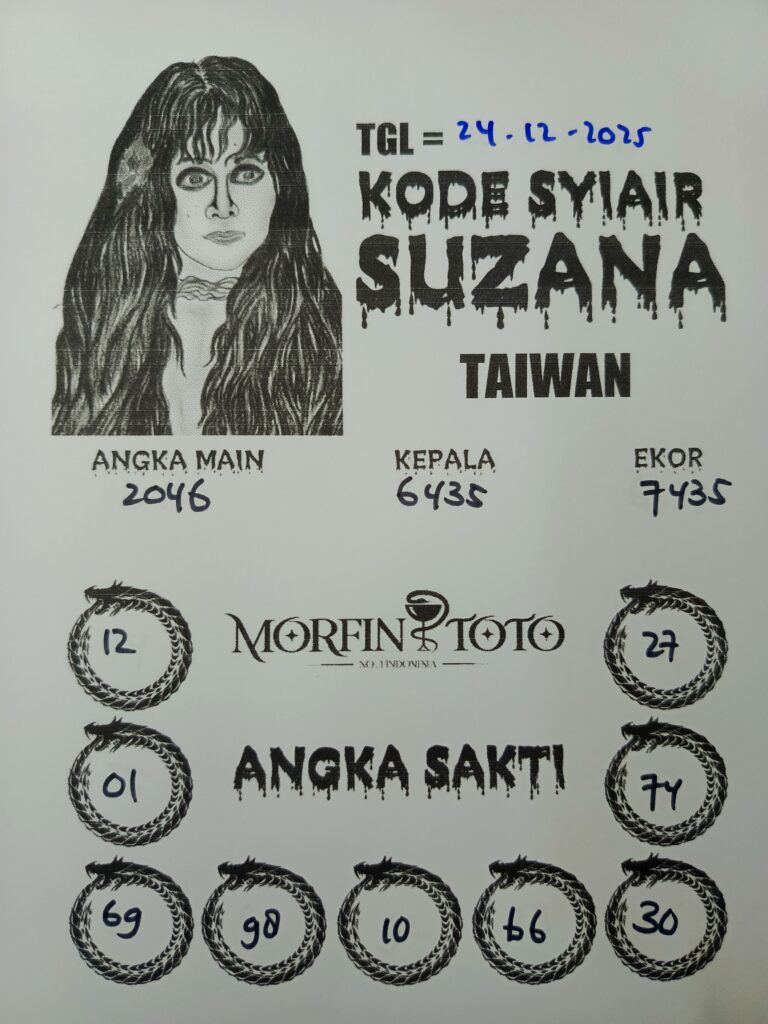 TGL = 24-12-2025
KODE SYIAIR
SUZANA
TAIWAN
ANGKA MAIN KEPALA EKOR
2046 6435 7435
MORFIN TOTO
NO.1 INDONESIA
12 27
ANGKA SAKTI
01 74
69 98 10 66 30